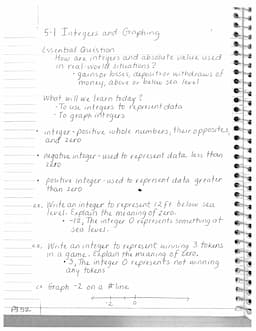 5-1 Integers and Graphing
Essential Question
How are integers and absolute value used
in real-world situations?
- gains or losses, deposits or withdraws of
money, above or below sea level
What will we learn today?
- To use integers to represent data
- To graph integers
• integer - positive whole numbers, their opposites,
and zero
• negative integer - used to represent data less than
zero
• positive integer - used to represent data greater
than zero
ex. Write an integer to represent 12 ft below sea
level. Explain the meaning of zero.
• -12, The integer 0 represents something at
sea level.
ex. Write an integer to represent winning 3 tokens
in a game. Explain the meaning of zero.
• 3, The integer 0 represents not winning
any tokens
ex Graph -2 on a # line
-2 0